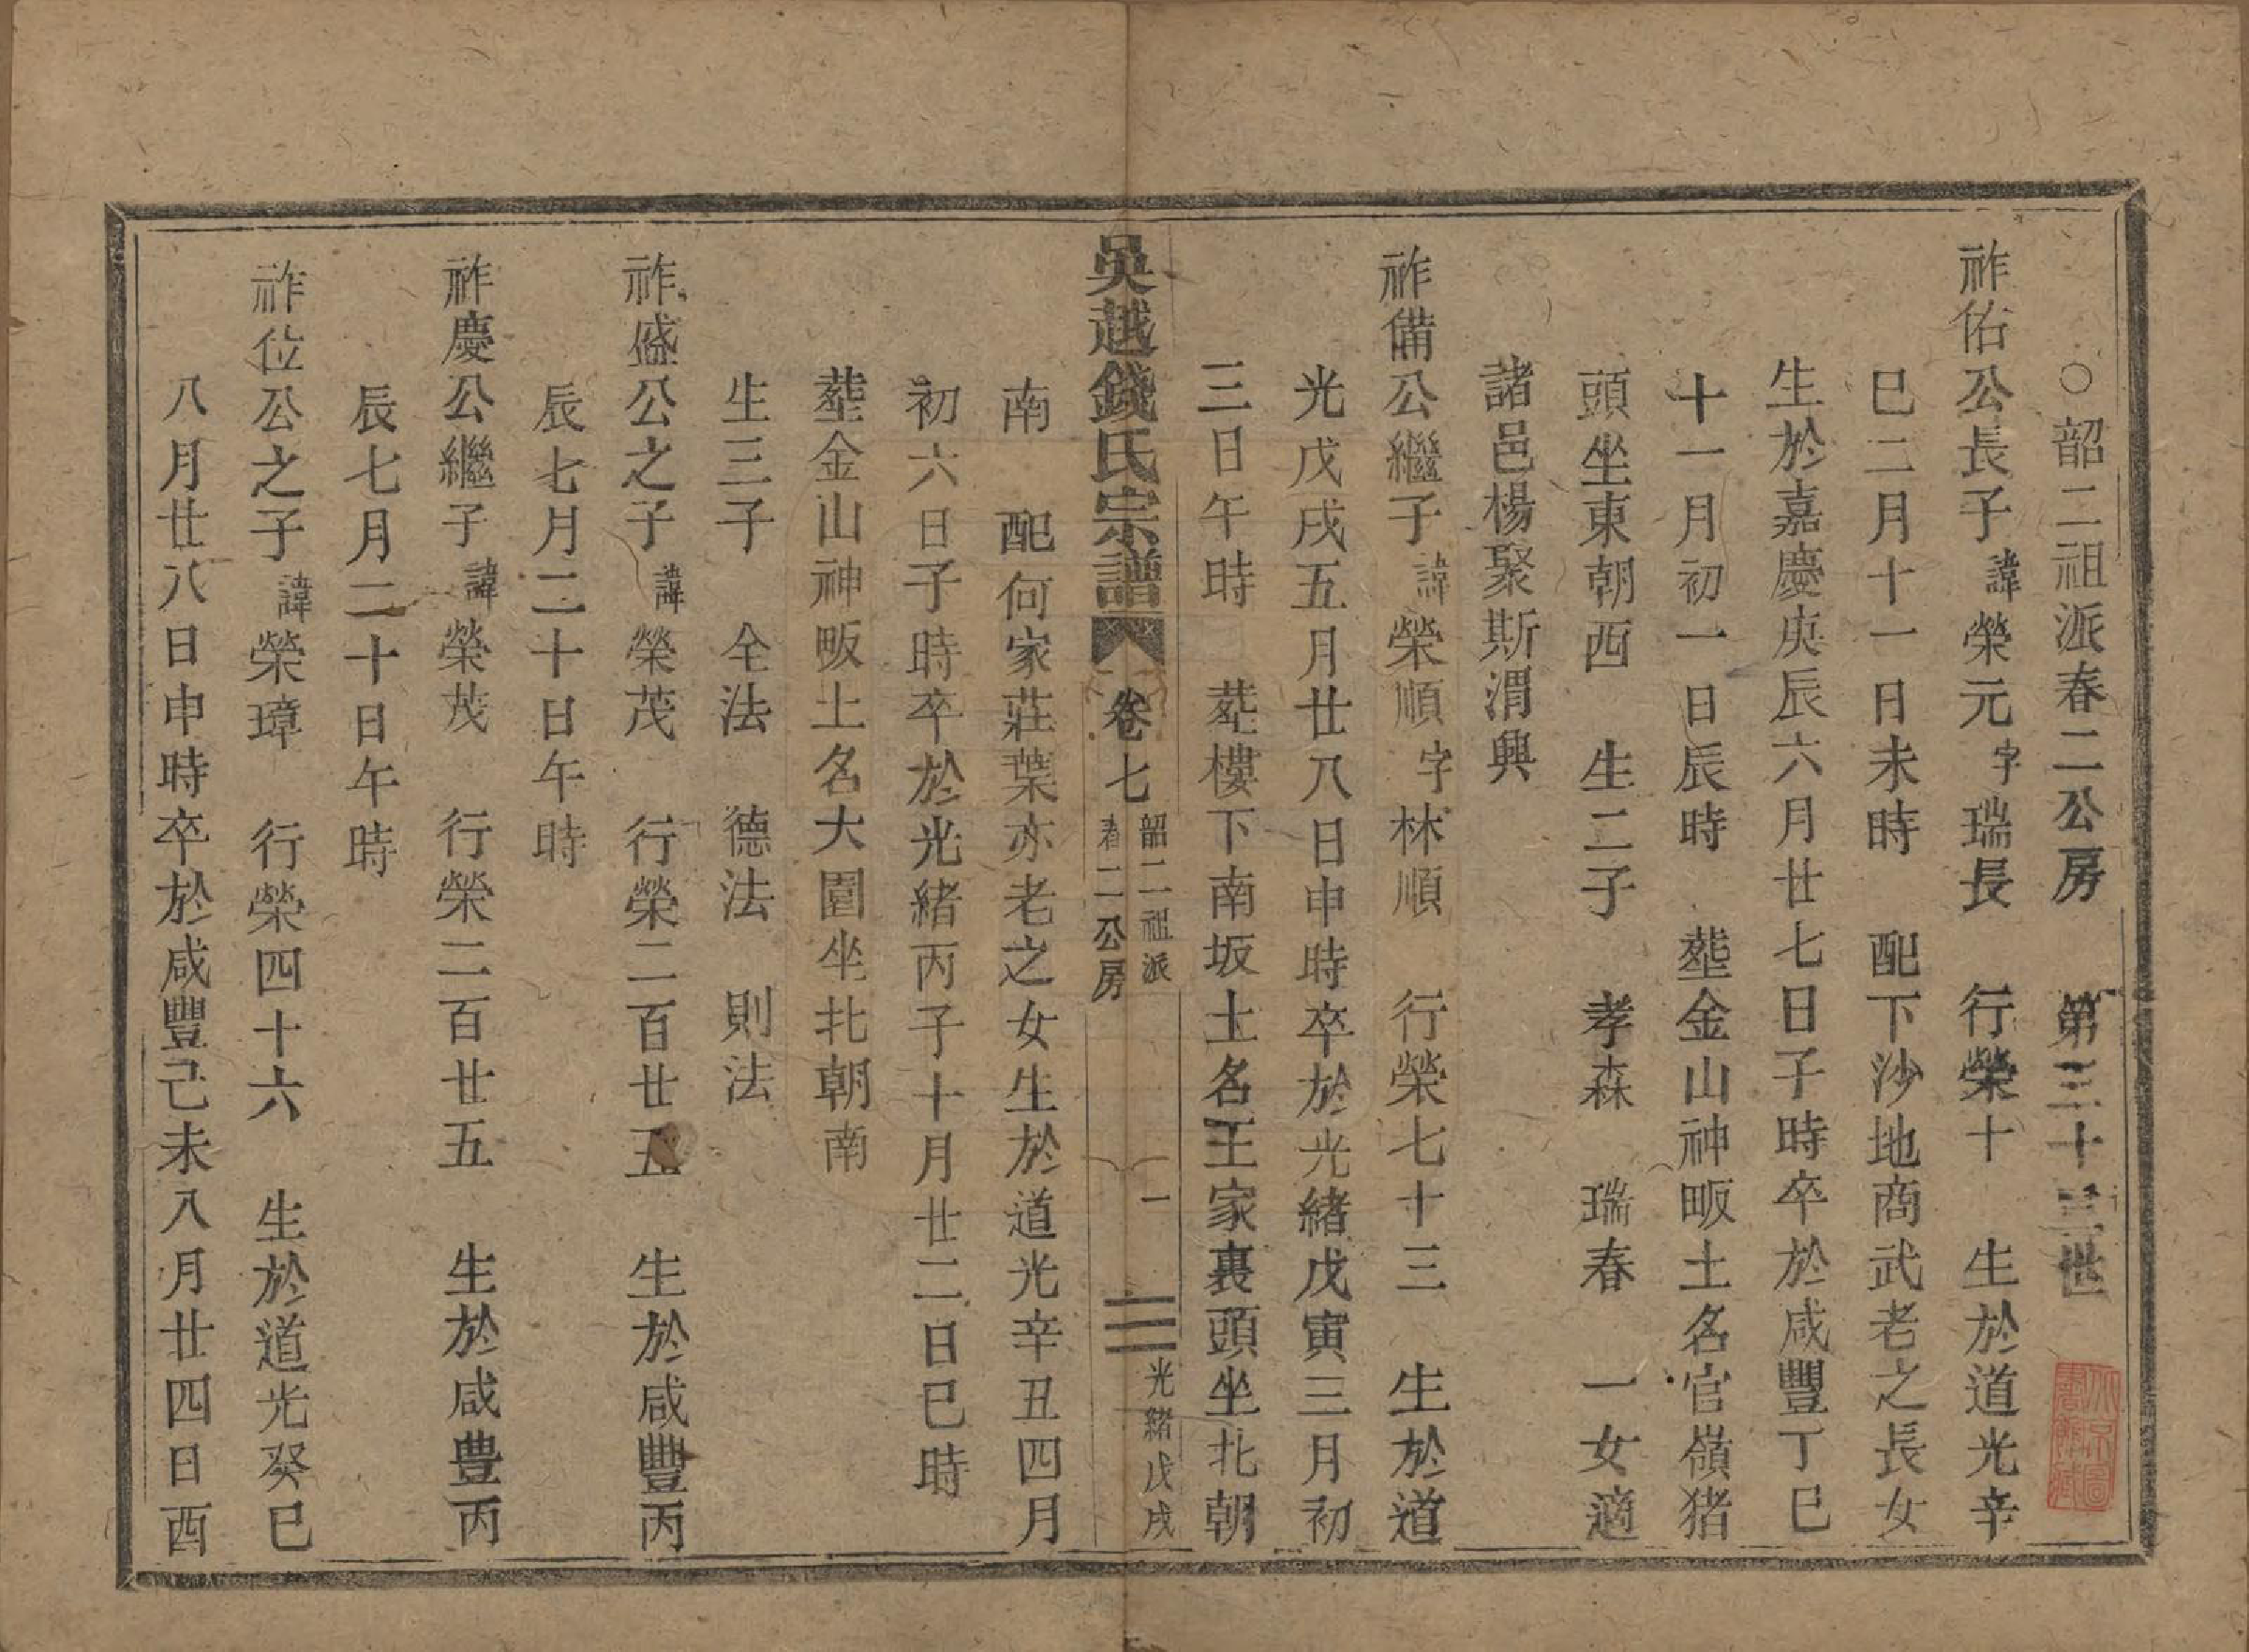 ○韶二祖派春二公房　第三十三世
祚佑公長子諱榮元字瑞長　行榮十　生於道光辛
巳二月十一日未時　配下沙地商武老之長女
生於嘉慶庚辰六月廿七日子時卒於咸豐丁巳
十一月初一日辰時　塟金山神畈土名官嶺猪
頭坐東朝西　生二子　孝森　瑞春　一女適
諸邑楊聚斯渭興
祚備公繼子諱榮順字林順　行榮七十三　生於道
光戊戌五月廿八日申時卒於光緒戊寅三月初
三日午時　塟樓下南坂土名王家裏頭坐北朝
吳越錢氏宗譜　卷七　韶二祖派　春二公房　一　光緒戊戌
南　配何家莊葉亦老之女生於道光辛丑四月
初六日子時卒於光緒丙子十月廿二日巳時
塟金山神畈土名大園坐北朝南
生三子　仝法　德法　則法
祚盛公之子諱榮茂　行榮二百廿五　生於咸豐丙
辰七月二十日午時
祚慶公繼子諱榮茂　行榮二百廿五　生於咸豊丙
辰七月二十日午時
祚位公之子諱榮璋　行榮四十六　生於道光癸巳
八月廿八日申時卒於咸豐己未八月廿四日酉